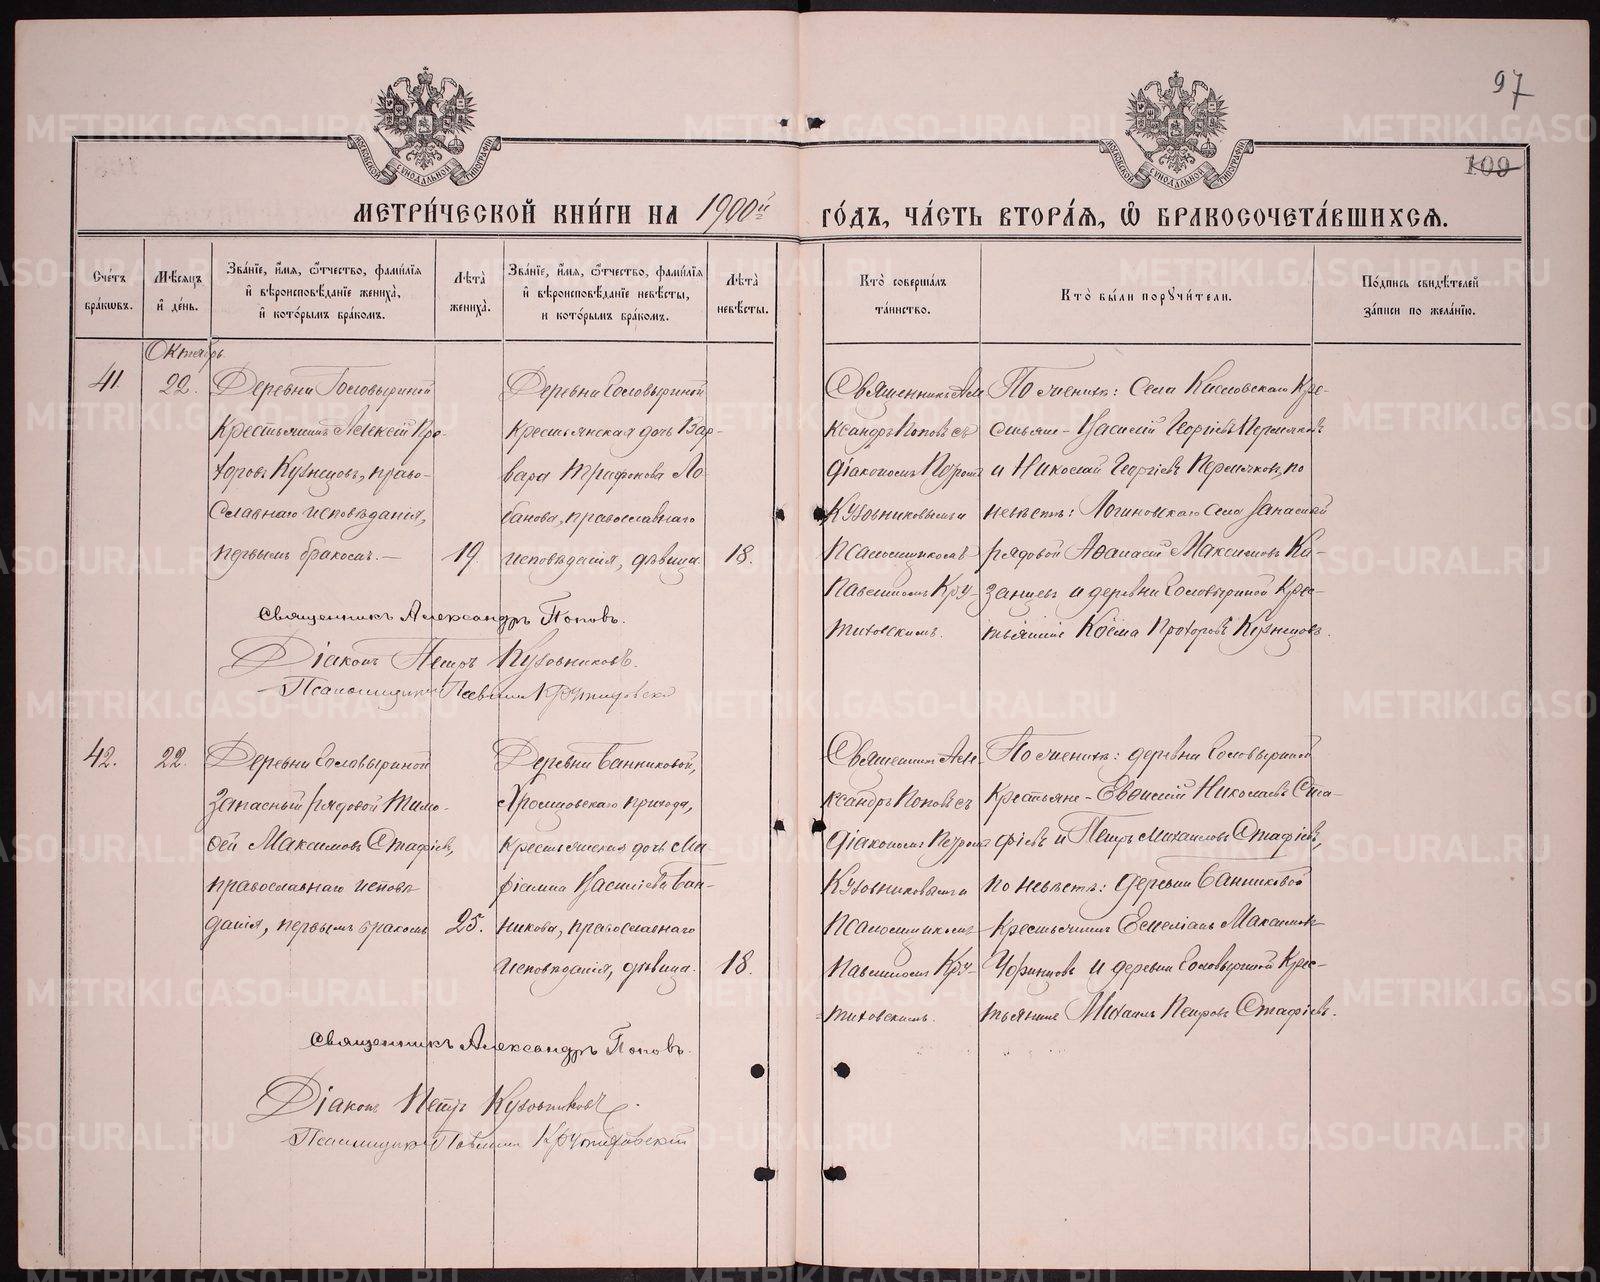 97
109
МОСКОВСКОЙ СѴНОДАЛЬНОЙ ТИПОГРАФІИ
МОСКОВСКОЙ СѴНОДАЛЬНОЙ ТИПОГРАФІИ
МЕТРИ́ЧЕСКОЙ КНИ́ГИ НА 1900й ГО́ДЪ, ЧА́СТЬ ВТОРА́Я, Ѽ БРАКОСОЧЕТА́ВШИХСЯ.
Сче́тъ бра́кѡвъ.
Мѣ́сяцъ и҆ де́нь.
Зва́нїе, и҆́мя, ѻ҆́тчество, фами́лїя и҆ вѣроисповѣ́данїе жениха̀, и҆ кото́рымъ бра́комъ.
Лѣта̀ жениха̀.
Зва́нїе, и҆́мя, ѻ҆́тчество, фами́лїя и҆ вѣроисповѣ́данїе невѣ́сты, и кото́рымъ бра́комъ.
Лѣта̀ невѣ́сты.
Кто̀ соверша́лъ та́инство.
Кто̀ бы́ли порꙋчи́тели.
По́дпись свидѣ́телей за́писи по жела́нїю.
Октябрь
41.
22.
Деревни Головыриной
крестьянинъ Алексій Про-
хоровъ Кузнецовъ, право-
славнаго исповѣданія,
первымъ бракомъ.—
19.
Деревни Головыриной
крестьянская дочь Вар-
вара Трифонова Ло
банова, православнаго
исповѣданія, дѣвица.
18.
Священникъ Але
ксандръ Поповъ съ
діакономъ Петромъ
Кузовниковымъ и
псаломщикомъ
Павлиномъ Кру-
тиховскимъ.
По женихѣ: села Кисловскаго кре-
стьяне - Василій Георгіевъ Пермяковъ
и Николай Георгіевъ Пермяковъ, по
невѣстѣ: Логиновскаго села запасный
рядовой Аѳанасій Максимовъ Ка-
занцевъ и деревни Головыриной крес-
тьянинъ Козма Прохоровъ Кузнецовъ.
Священникъ Александръ Поповъ.
Діаконъ Петръ Кузовниковъ.
Псаломщикъ Павлинъ Крутиховскій
42.
22.
Деревни Головыриной
запасный рядовой Тимо-
ѳей Максимовъ Стафѣевъ,
православнаго исповѣ
данія, первымъ бракомъ
25.
Деревни Банниковой,
Хромцовскаго прихода,
крестьянская дочь Ма
ріамна Васильева Бан-
никова, православнаго
исповѣданія, дѣвица.
18.
Священникъ Але-
ксандръ Поповъ съ
діакономъ Петромъ
Кузовниковымъ и
псаломщикомъ
Павлиномъ Кру-
тиховскимъ.
По женихѣ: деревни Головыриной
крестьяне - Евѳимій Николаевъ Ста-
фѣевъ и Петръ Михаиловъ Стафѣевъ,
по невѣстѣ: деревни Банниковой
крестьянинъ Емеліанъ Максимовъ
и деревни Головыриной крес-
тьянинъ Михаилъ Петровъ Стафѣевъ.
Священникъ Александръ Поповъ.
Діаконъ Петръ Кузовниковъ.
Псаломщикъ Павлинъ Крутиховскій
METRIKI.GASO-URAL.RU